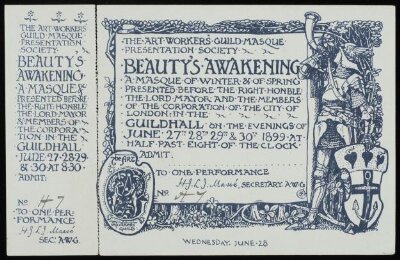 THE·ART·WORKERS
GUILD·MASQUE·
PRESENTATION
SOCIETY·
BEAUTY'S
AWAKENING
·A·MASQUE·&
PRESENTED·BEFORE
THE·RIGHT·HONBLE
THE·LORD·MAYOR
&·MEMBERS·OF
THE·CORPORA=
TION·IN·THE
GUILDHALL
·JUNE·27·28·29·
&·30·AT·8·30·
·ADMIT·
No 47
·TO·ONE·PER=
FORMANCE
H.J.L.J. Massé
SEC: A·W·G·
·THE·ART·WORKERS·GUILD·MASQUE·
·PRESENTATION·SOCIETY·
BEAUTY'S·AWAKENING
·A·MASQUE·OF·WINTER·&·OF·SPRING·
PRESENTED·BEFORE·THE·RIGHT·HONBLE
·THE·LORD·MAYOR·AND·THE·MEMBERS
·OF·THE·CORPORATION·OF·THE·CITY·OF
LONDON:IN·THE
GUILDHALL·ON·THE·EVENINGS·OF
JUNE·27TH 28TH 29TH &·30TH 1899·AT·
HALF·PAST·EIGHT·OF·THE·CLOCK
·ADMIT·
·TO·ONE·PERFORMANCE
H.J.L.J. Massé, SECRETARY·A·W·G·
No 47
WEDNESDAY. JUNE·28